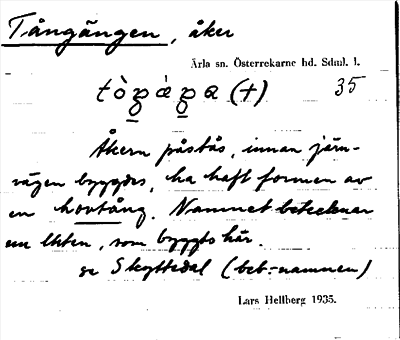 Tångängen, åker
Ärla sn. Österrekarne hd. Sdml. l.
35
Åkern påstås, innan järn-
vägen byggdes, ha haft formen av
en hovtång. Namnet betecknar
nu               , som byggts här.
se Skyttedal (beb.-namnen)
Lars Hellberg 1935.